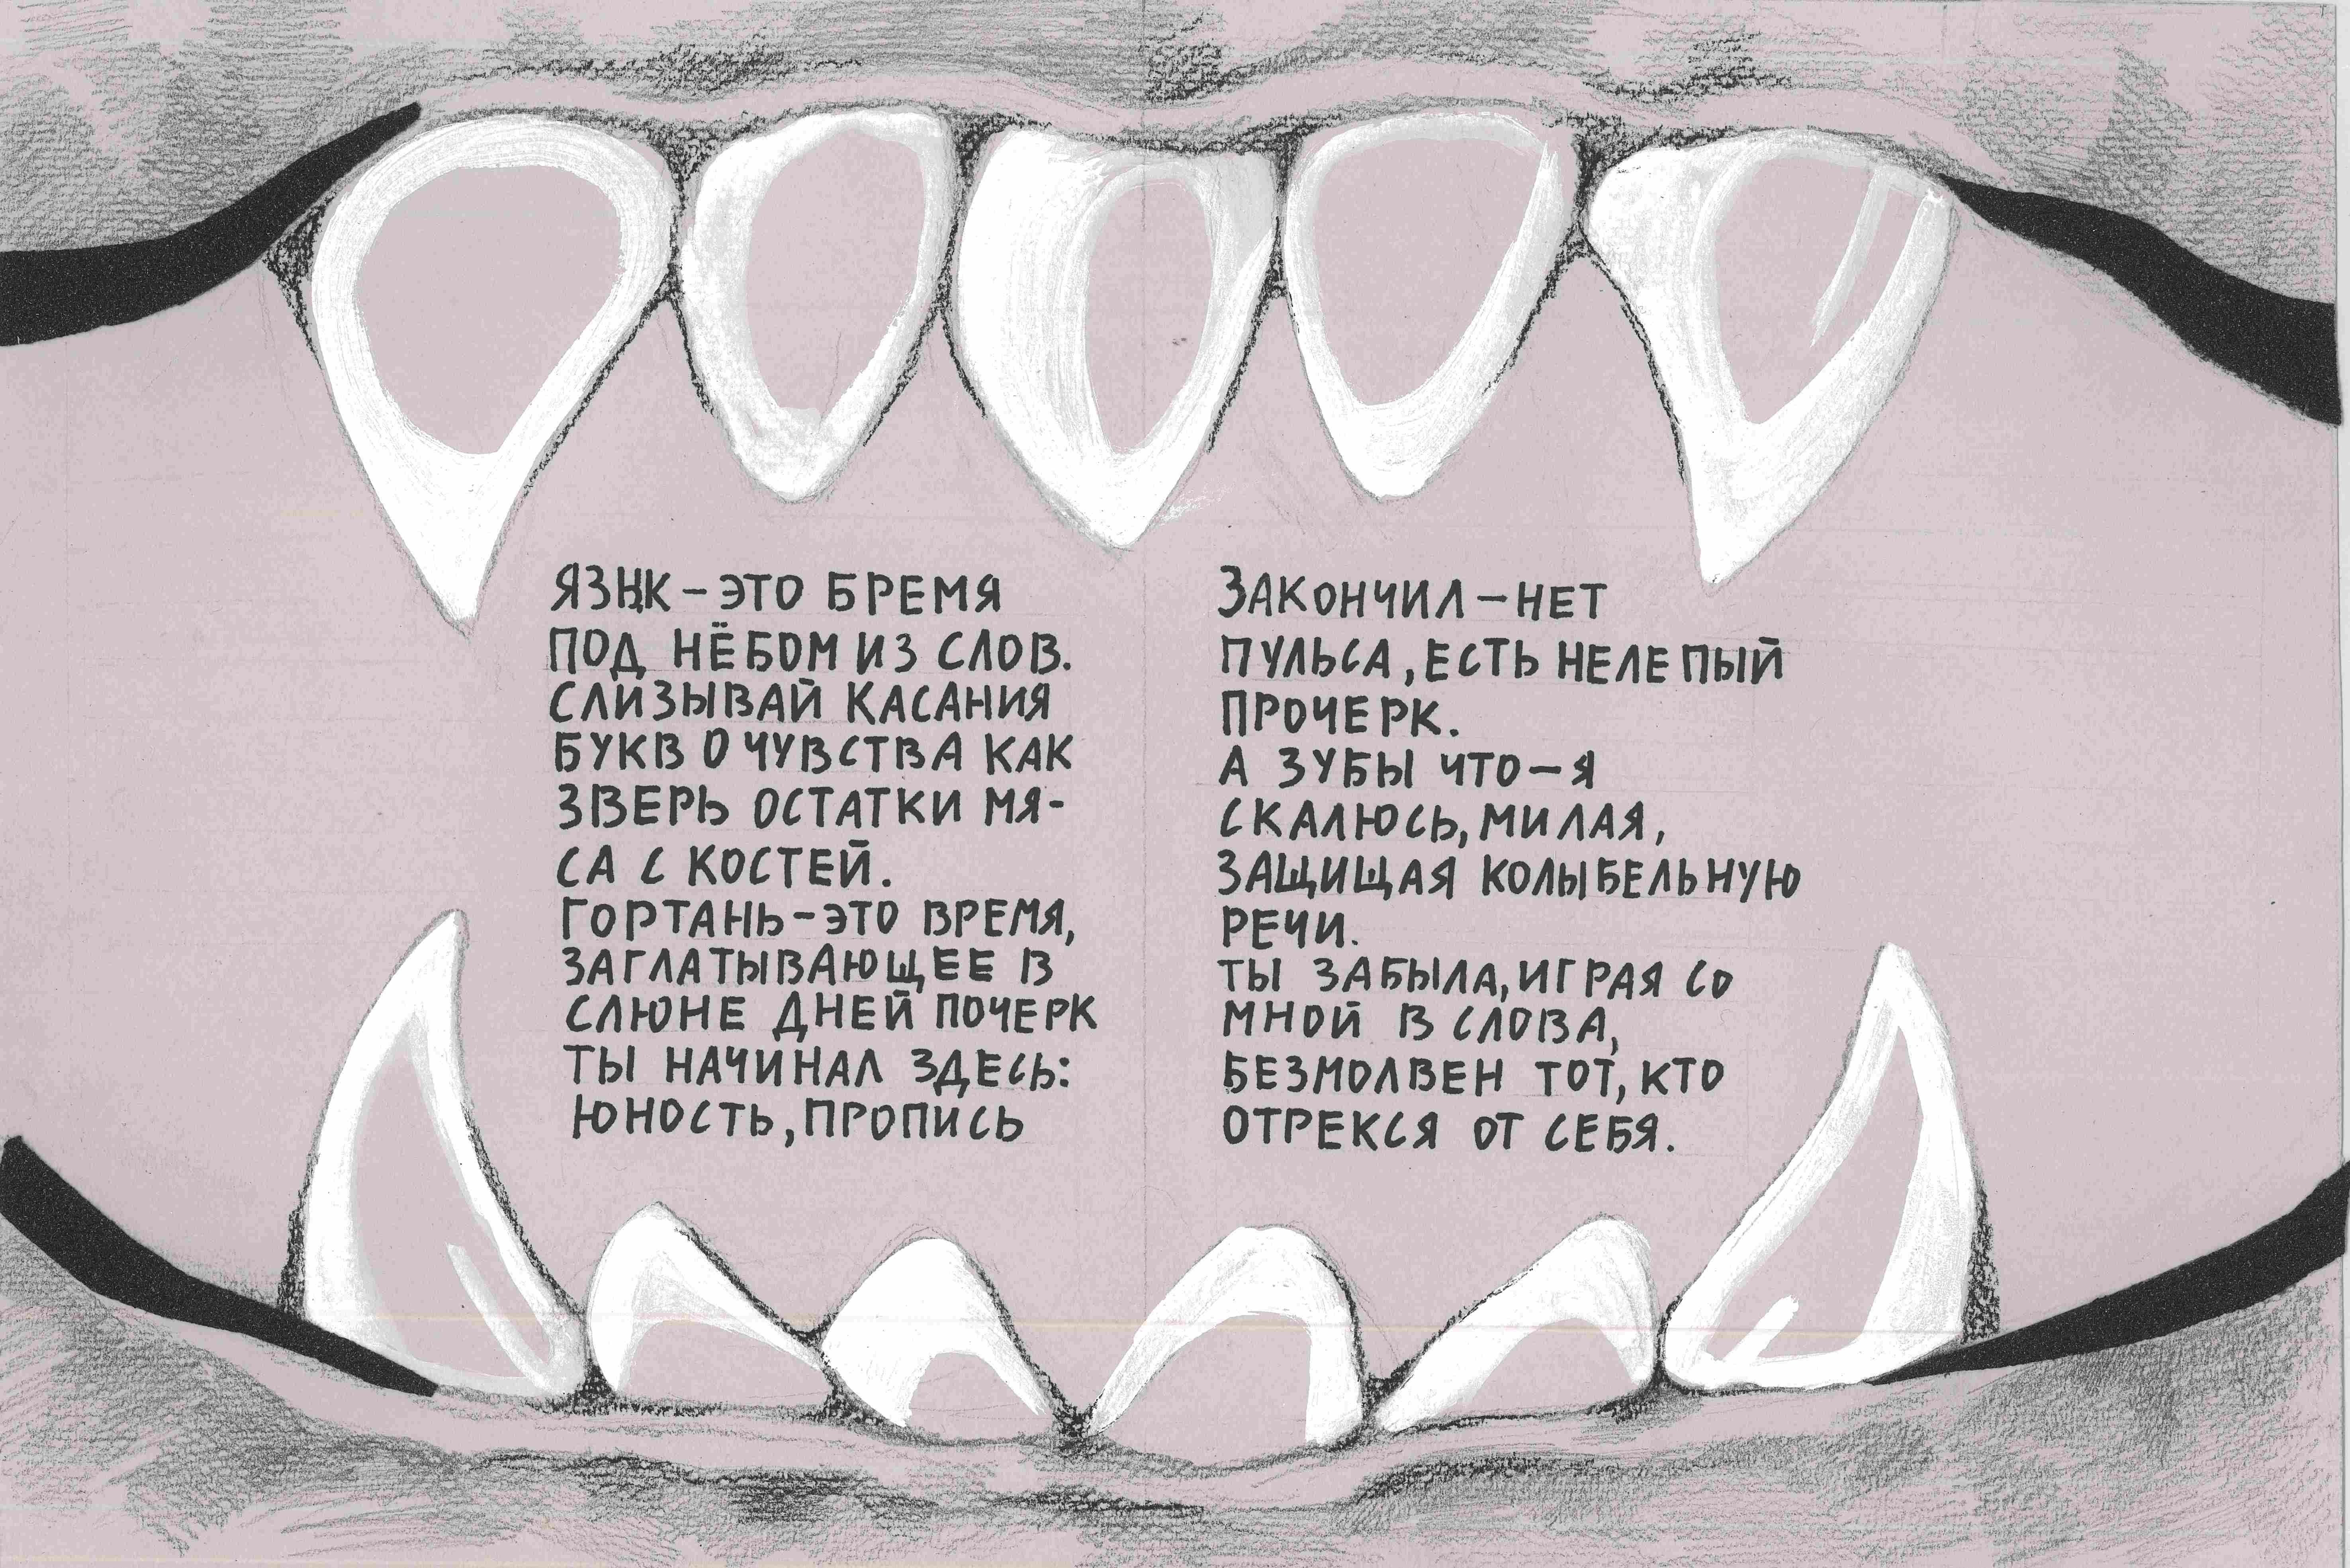 ЯЗЫК – ЭТО БРЕМЯ
ПОД НЁБОМ ИЗ СЛОВ.
СЛИЗЫВАЙ КАСАНИЯ
БУКВ О ЧУВСТВА КАК
ЗВЕРЬ ОСТАТКИ МЯ-
СА С КОСТЕЙ.
ГОРТАНЬ – ЭТО ВРЕМЯ,
ЗАГЛАТЫВАЮЩЕЕ В
СЛЮНЕ ДНЕЙ ПОЧЕРК
ТЫ НАЧИНАЛ ЗДЕСЬ:
ЮНОСТЬ, ПРОПИСЬ
ЗАКОНЧИЛ – НЕТ
ПУЛЬСА, ЕСТЬ НЕЛЕПЫЙ
ПРОЧЕРК.
А ЗУБЫ ЧТО – Я
СКАЛЮСЬ, МИЛАЯ,
ЗАЩИЩАЯ КОЛЫБЕЛЬНУЮ
РЕЧИ.
ТЫ ЗАБЫЛА, ИГРАЯ СО
МНОЙ В СЛОВА,
БЕЗМОЛВЕН ТОТ, КТО
ОТРЕКСЯ ОТ СЕБЯ.